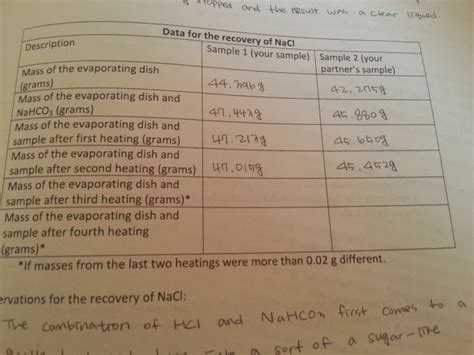 stopped and the result was a clear liquid.
Data for the recovery of NaCl
Description
Sample 1 (your sample)
Sample 2 (your
partner's sample)
Mass of the evaporating dish
(grams)
44.396g
42.275g
Mass of the evaporating dish and
NaHCO₃ (grams)
47.447g
45.880g
Mass of the evaporating dish and
sample after first heating (grams)
47.217g
45.650g
Mass of the evaporating dish and
sample after second heating (grams)
47.015g
45.452g
Mass of the evaporating dish and
sample after third heating (grams)*
Mass of the evaporating dish and
sample after fourth heating
(grams)*
*If masses from the last two heatings were more than 0.02 g different.
ervations for the recovery of NaCl:
The combination of HCl and NaHCO₃ first comes to a
a sort of a sugar-like